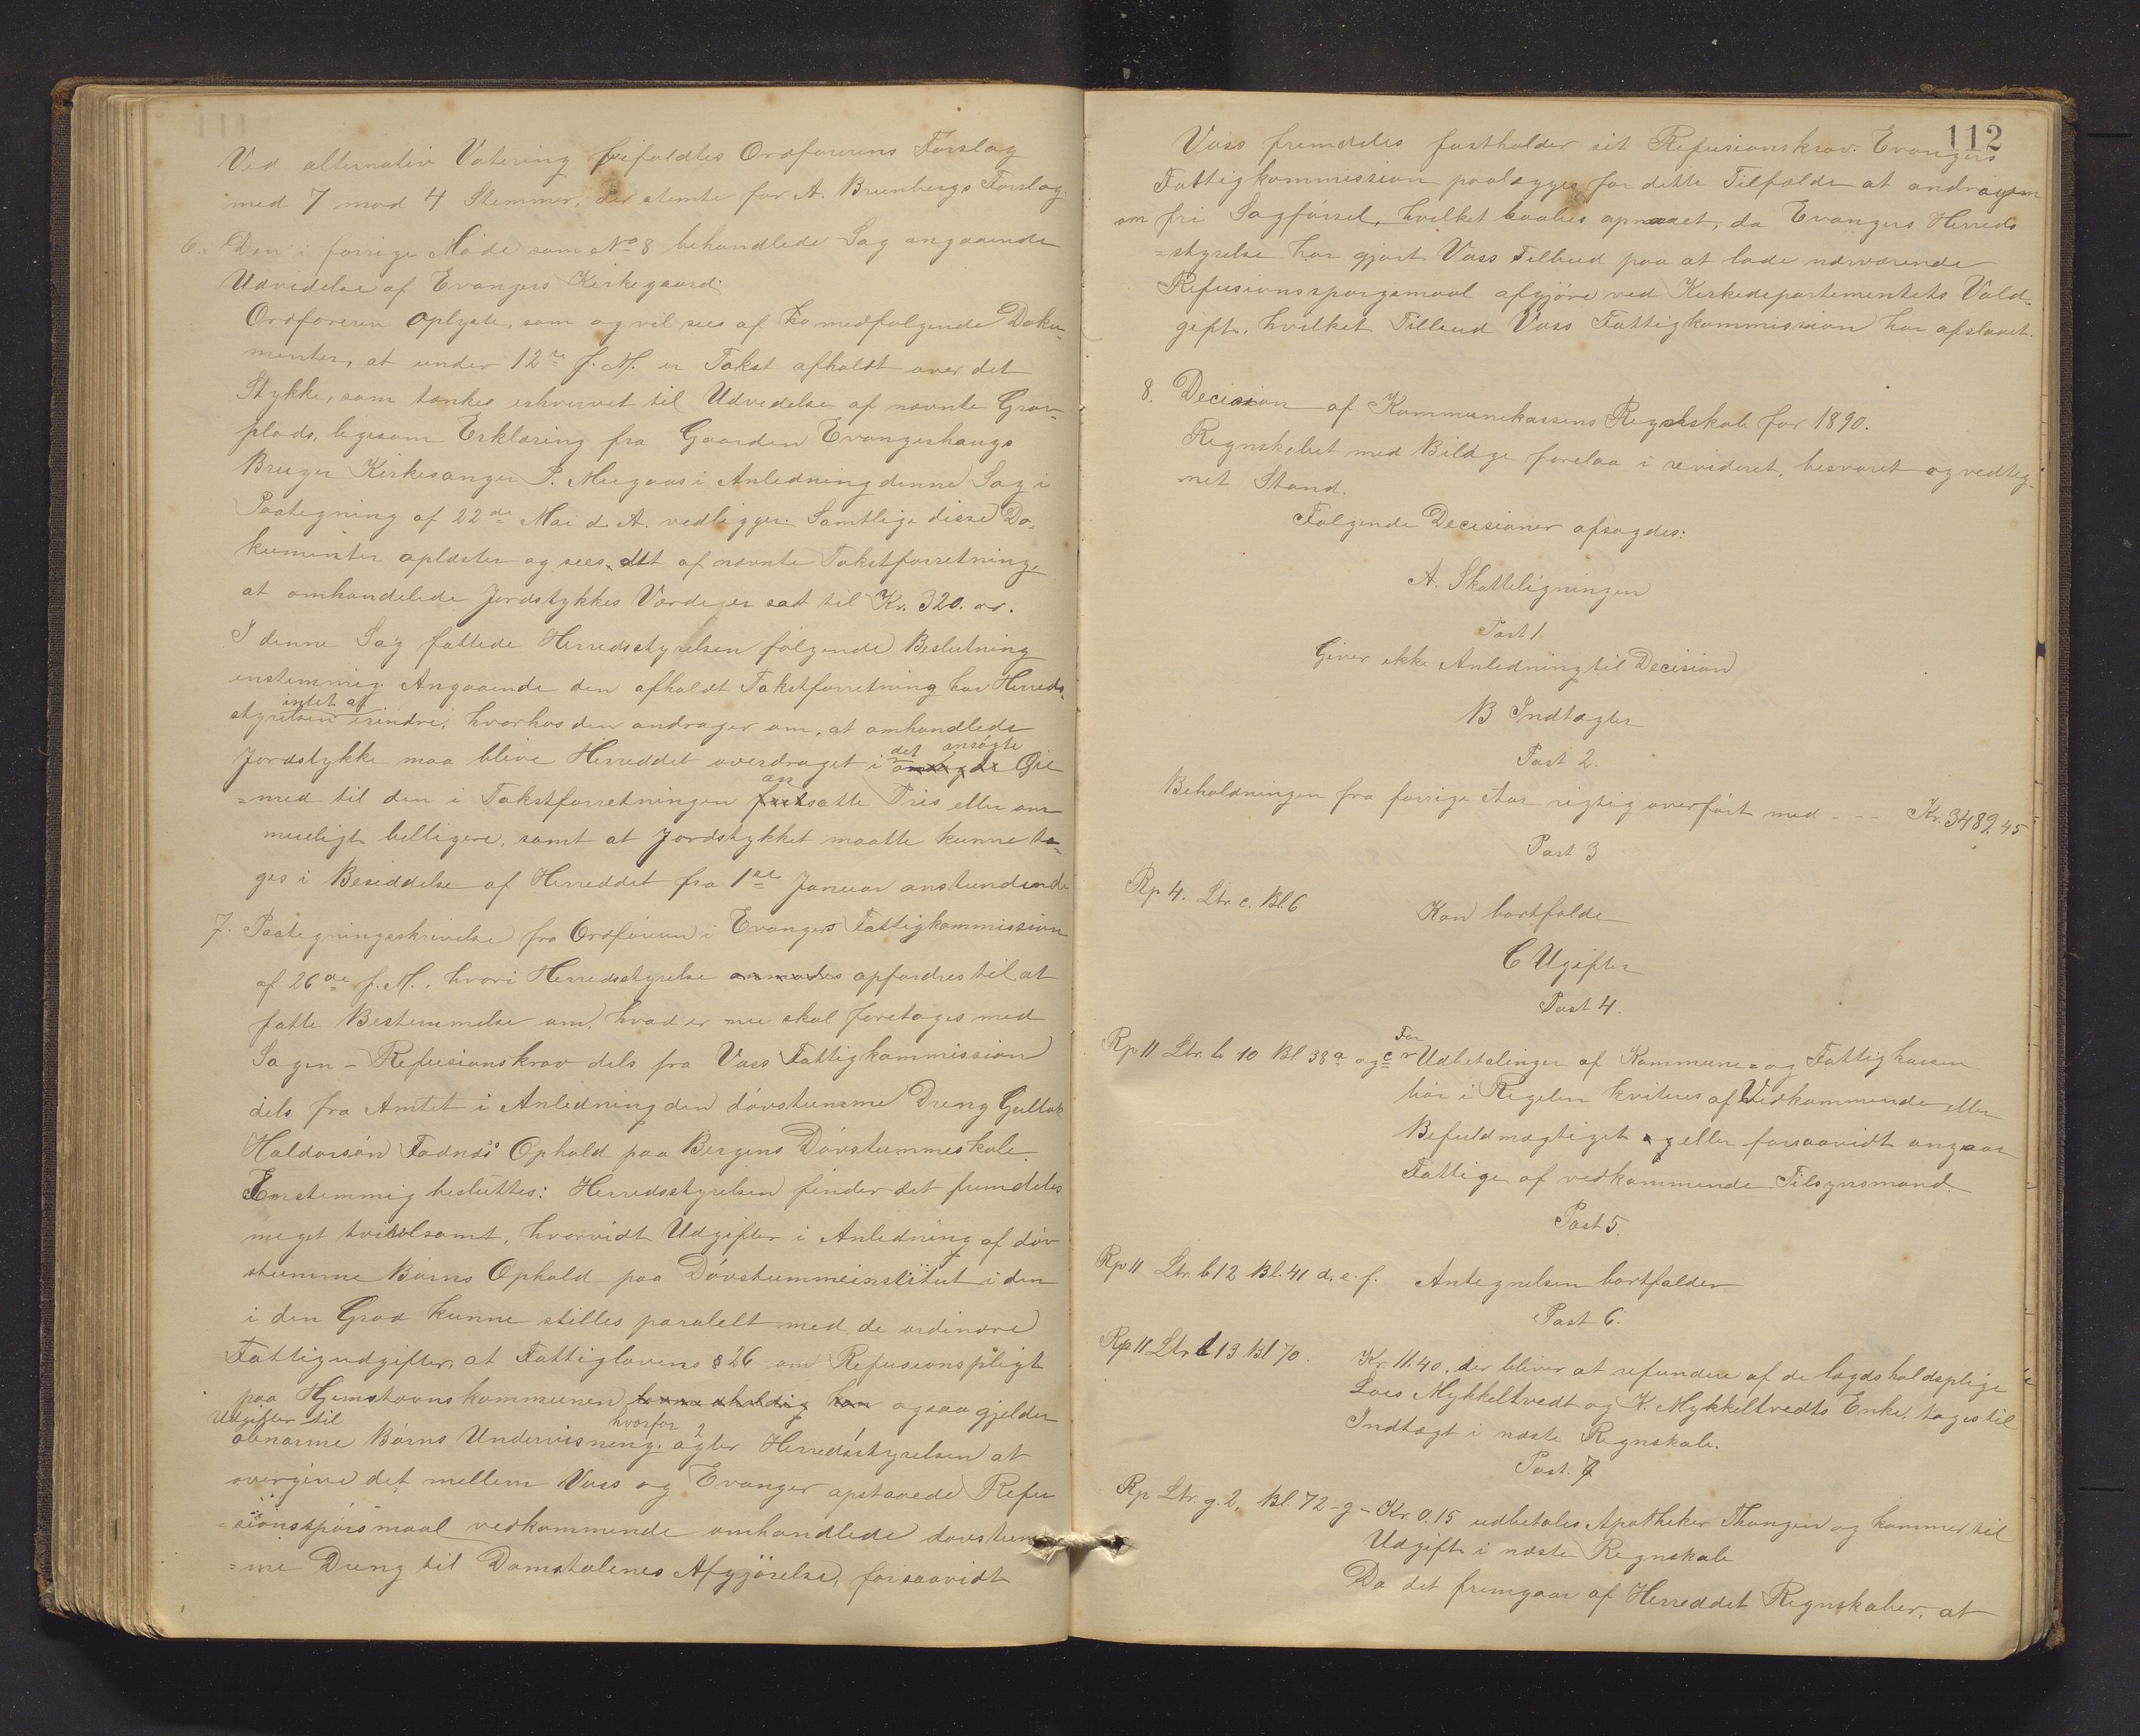 Ved alternativ Votering bifaldtes Ordførerens Forslag
med 7 mod 4 Stemmer, der stemte for A. Brunborgs Forslag.
6. Den i forrige Møde som No 8 behandlede Sag angaaende
Udvidelse af Evangers Kirkegaard.
Ordføreren oplyste, som og vil sees af medfølgende Doku-
menter, at under 12te f. M. er Takst afholdt over det
Stykke, som tænkes erhvervet til Udvidelse af nævnte Grav-
plads, ligesom Erklæring fra Gaarden Evangershaugs
Bruger Kirkesanger P. Mugaas i Anledning denne Sag i
Paategning af 22de Mai d. A. vedligger. Samtlige disse Do-
kumenter oplæstes og sees det af nævnte Takstforretning,
at omhandelede Jordstykkes Værdi er sat til Kr. 320.00.
I denne Sag fattede Herredsstyrelsen følgende Beslutning
enstemmig. Angaaende den afholdt Takstforretning har Herreds-
intet at
styrelsen erindre, hvorhos den andrager om, at omhandlede
det ansøgte
Jordstykke maa blive Herreddet overdraget i Øie
an
=med til den i Takstforretningen satte Pris eller om
mueligt billigere, samt at Jordstykket maatte kunne ta-
ges i Besiddelse af Herreddet fra 1ste Januar anstundende.
7. Paategningsskrivelse fra Ordføreren i Evangers Fattigkommission
af 26de f. M., hvori Herredsstyrelse anmodes opfordres til at
fatte Bestemmelse om, hvad er nu skal foretages med
Sagen - Refusionskrav dels fra Voss Fattigkommission
dels fra Amtet i Anledning den døvstumme Dreng Gullak
Haldorsøn Fadnes' Ophold paa Bergens Døvstummeskole.
Enstemmig besluttes: Herredsstyrelsen finder det fremdeles
meget tvivlsomt, hvorvidt Udgifter i Anledning af døv
stumme Børns Ophold paa Døvstummeinstitut i den
i den Grad kunne stilles paralelt med de ordinære
Fattigudgifter, at Fattiglovens § 26 om Refusionspligt
paa Hjemstavnskommunen ogsaa gjelder
Udgifter til hvorfor
abnorme Børns Undervisning. agter Herredsstyrelsen at
overgive det mellem Voss og Evanger opstaaede Refu
=sionsspørsmaal vedkommende omhandlede døvstum
=me Dreng til Domstolenes Afgjørelse, forsaavidt
112
Voss fremdeles fastholder sit Refusionskrav. Evangers
Fattigkommission paalægges for dette Tilfælde at andrage om
om fri Sagførsel, hvilket haabes opnaaet, da Evangers Herreds
=styrelse har gjort Voss Tilbud paa at lade nærværende
Refusionsspørgsmaal afgjøre ved Kirkedepartementets Vold-
gift, hvilket Tilbud Voss Fattigkommission har afslaaet.
8. Decision af Kommunekassens Regnskab for 1890.
Regnskabet med Bilage forelaa i revideret, besvaret og vedteg-
net Stand.
Følgende Decisioner afsagdes:
A. Skatteligningen
Post 1.
Giver ikke Anledning til Decision
B Indtægter
Post 2.
Beholdningen fra forrige Aar rigtig overført med - - - Kr. 3489.45
Post 3
Rp 4. Ltr. c. Bl. 6 Kan bortfalde
C Ugifter
Post 4.
For
Rp 11 Ltr. b 10 Bl 38 a og c Udbetalinger af Kommune= og Fattigkassen
bør i Regelen kviteres af Vedkommende eller
Befuldmægtiget eller forsaavidt angaar
Fattige af vedkommende Tilsynsmand.
Post 5.
Rp 11 Ltr. b 12 Bl. 41 d. e. f. Antegnelsen bortfalder
Post 6.
Rp 11 Ltr 13 Bl 70. Kr. 11.40, der bliver at refundere af de lægdsholdsplige
Lars Mykkeltvedt og K. Mykkeltvedts Enke, tages til
Indtægt i næste Regnskab.
Post. 7
Rp Ltr. g. 2, Bl. 72 - g - Kr. 0.15 udbetales Apotheker Thongen og kommer til
Udgift i næste Regnskab
Da det fremgaar af Herreddet Regnskaber, at